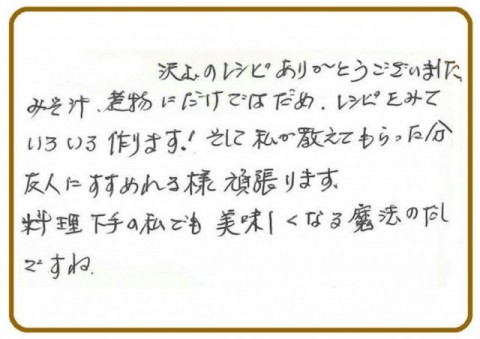 沢山のレシピありがとうございました。
みそ汁、煮物にだけではだめ、レシピをみて
いろいろ作ります!そして私が教えてもらった分
友人にすすめれる様頑張ります。
料理下手の私でも美味しくなる魔法のだし
ですね。